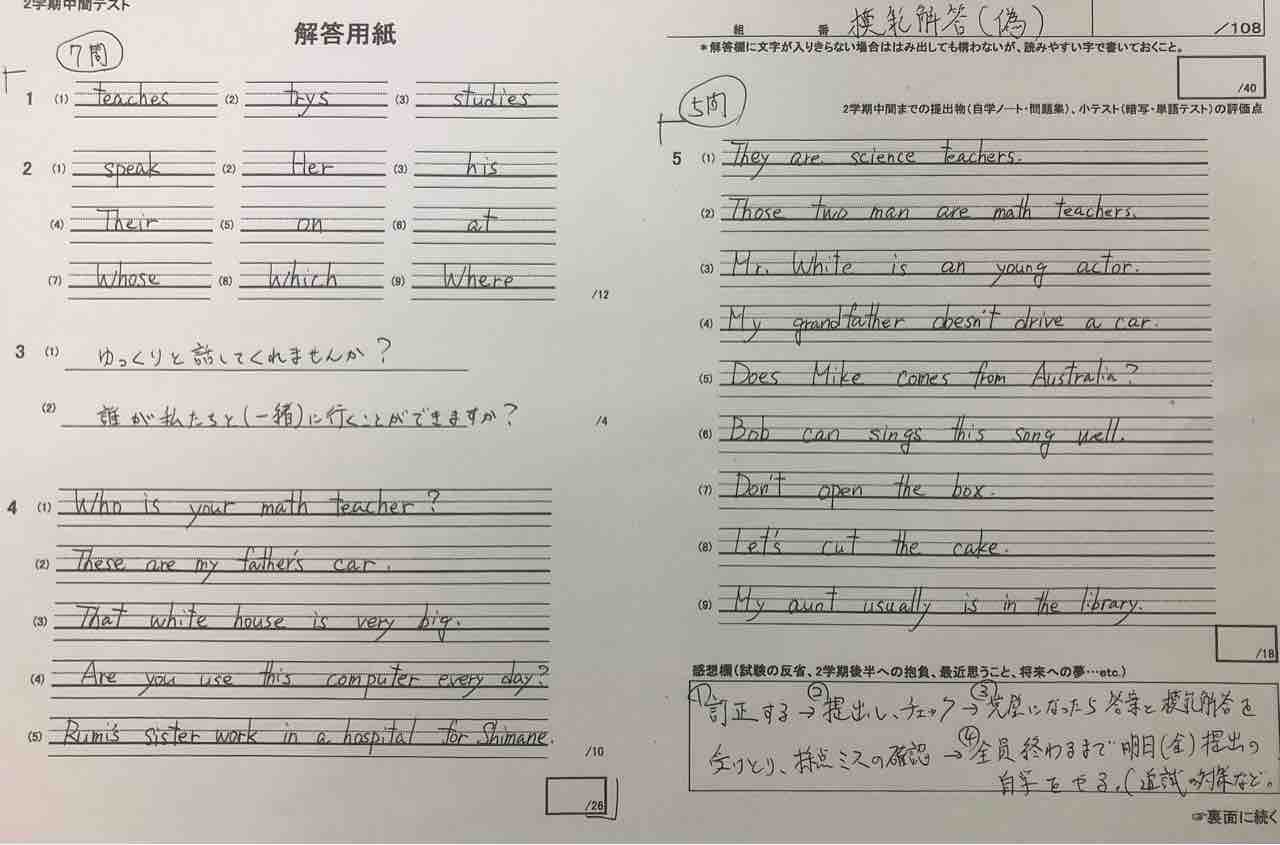 2学期中間テスト
解答用紙
7問
1 (1) teaches (2) trys (3) studies
2 (1) speak (2) Her (3) his
(4) Their (5) on (6) at
(7) Whose (8) Which (9) Where
/12
3 (1) ゆっくりと話してくれませんか?
(2) 誰が私たちと(一緒)に行くことができますか?
/4
4 (1) Who is your math teacher?
(2) These are my father's car.
(3) That white house is very big.
(4) Are you use this computer every day?
(5) Rumi's sister work in a hospital for Shimane.
/10
/26
組 番 模範解答(偽)
/108
*解答欄に文字が入りきらない場合ははみ出しても構わないが、読みやすい字で書いておくこと。
/40
5問
2学期中間までの提出物(自学ノート・問題集)、小テスト(暗写・単語テスト)の評価点
5 (1) They are science teachers.
(2) Those two man are math teachers.
(3) Mr. White is an young actor.
(4) My grandfather doesn't drive a car.
(5) Does Mike comes from Australia?
(6) Bob can sings this song well.
(7) Don't open the box.
(8) Let's cut the cake.
(9) My aunt usually is in the library.
/18
感想欄(試験の反省、2学期後半への抱負、最近思うこと、将来への夢…etc.)
①訂正する→②提出し、チェック→③完璧になったら答案と模範解答を
受けとり、採点ミスの確認→④全員終わるまで明日(金)提出の
自学をやる。(追試の対策など。
☞裏面に続く